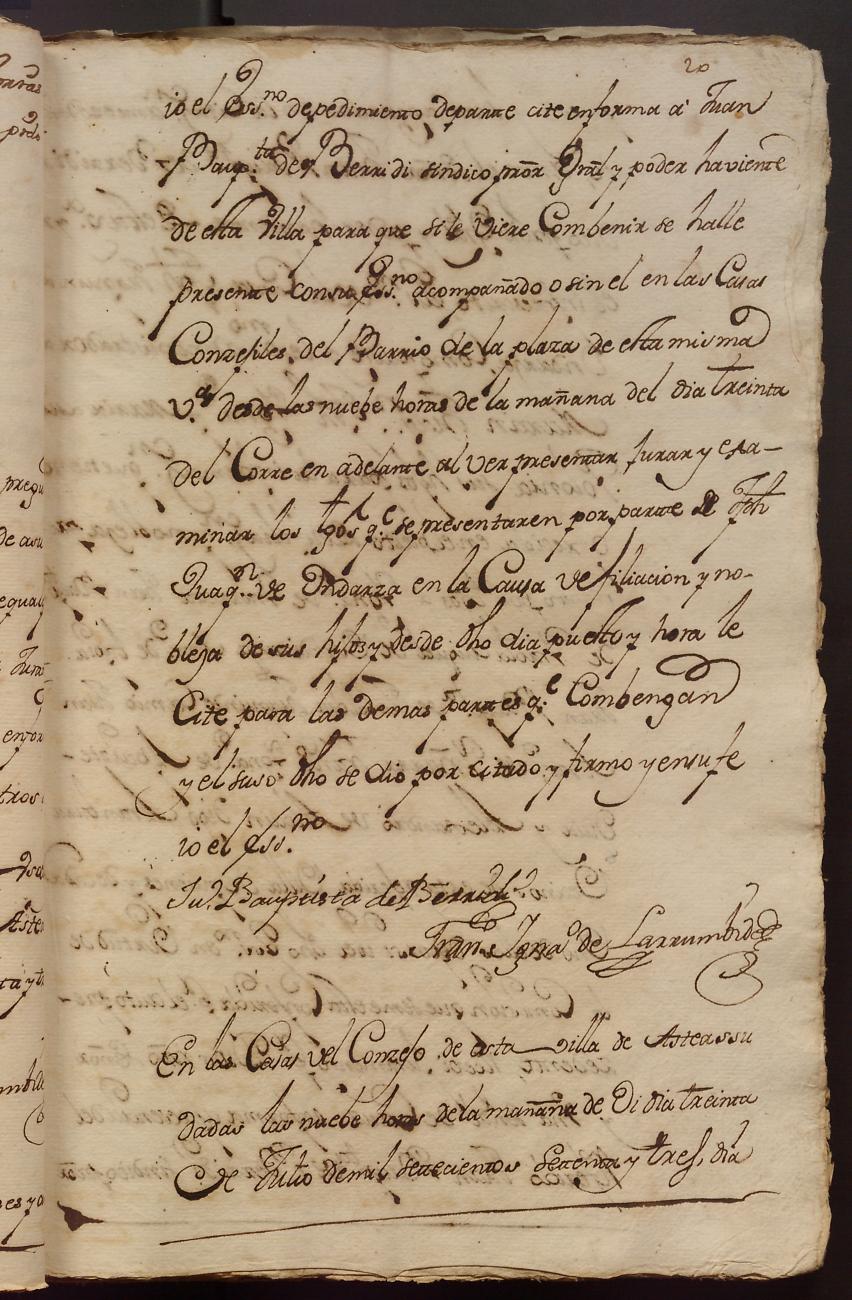 20
io el Ess.no de pedimiento de parte cite en forma a Juan
Baup.ta de Berridi sindico pror Gral y poder haviente
de esta Villa para que si le viere Combenir se halle
presente con su Ess.no acompañado o sin el en las Casas
Conzejiles del Barrio de la plaza de esta misma
V.a desde las nuebe horas de la mañana del dia treinta
del Corre en adelante al ver presentar Jurar y exa-
minar los tgos q.e se presentaren por parte de Jph
Juaq.n de Indarza en la Causa de filiacion y no-
bleza de sus hijos y desde dho dia puesto y hora le
Cite para las demas partes q.e Combengan
y el suso dho se dio por citado y firmo y en su fe
io el Ess.no
Ju.n Bauptista de Berridi
Fran.co Igna.o de Larrumbide
En las Casas del Conzejo de esta villa de Asteassu
dadas las nuebe horas de la mañana de Di dia treinta
de Julio de mil setecientos setenta y tres, dia